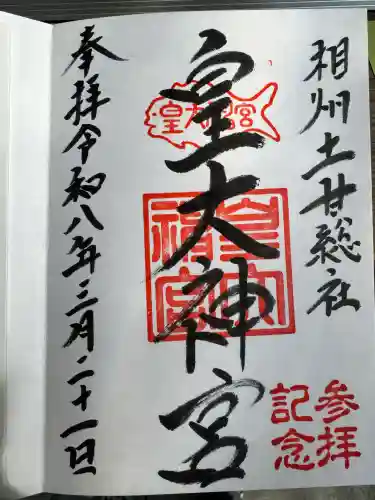 相州土甘総社
皇大神宮
皇大神宮
参拝
記念
奉拝令和八年三月二十一日